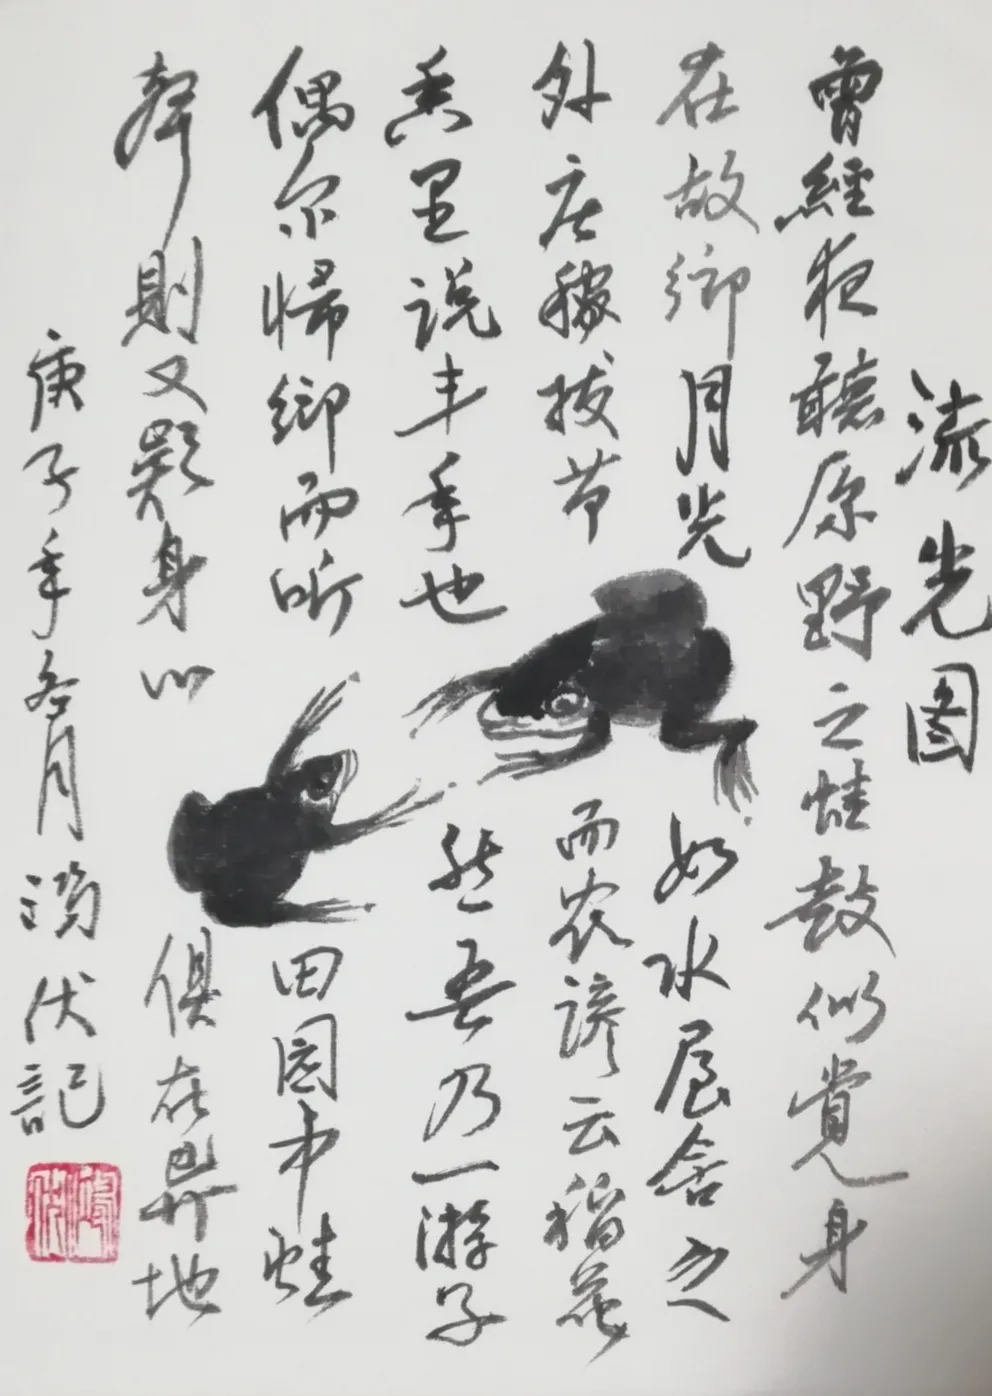 流光图
曾經夜聽原野之蛙鼓似覺身
在故鄉月光如水屋舍之
外庄稼拔节而农谚云稻花
香里说丰年也然吾乃一游子
偶尔帰鄉而听田园中蛙
聲則又疑身心俱在異地
庚子年冬月伏記